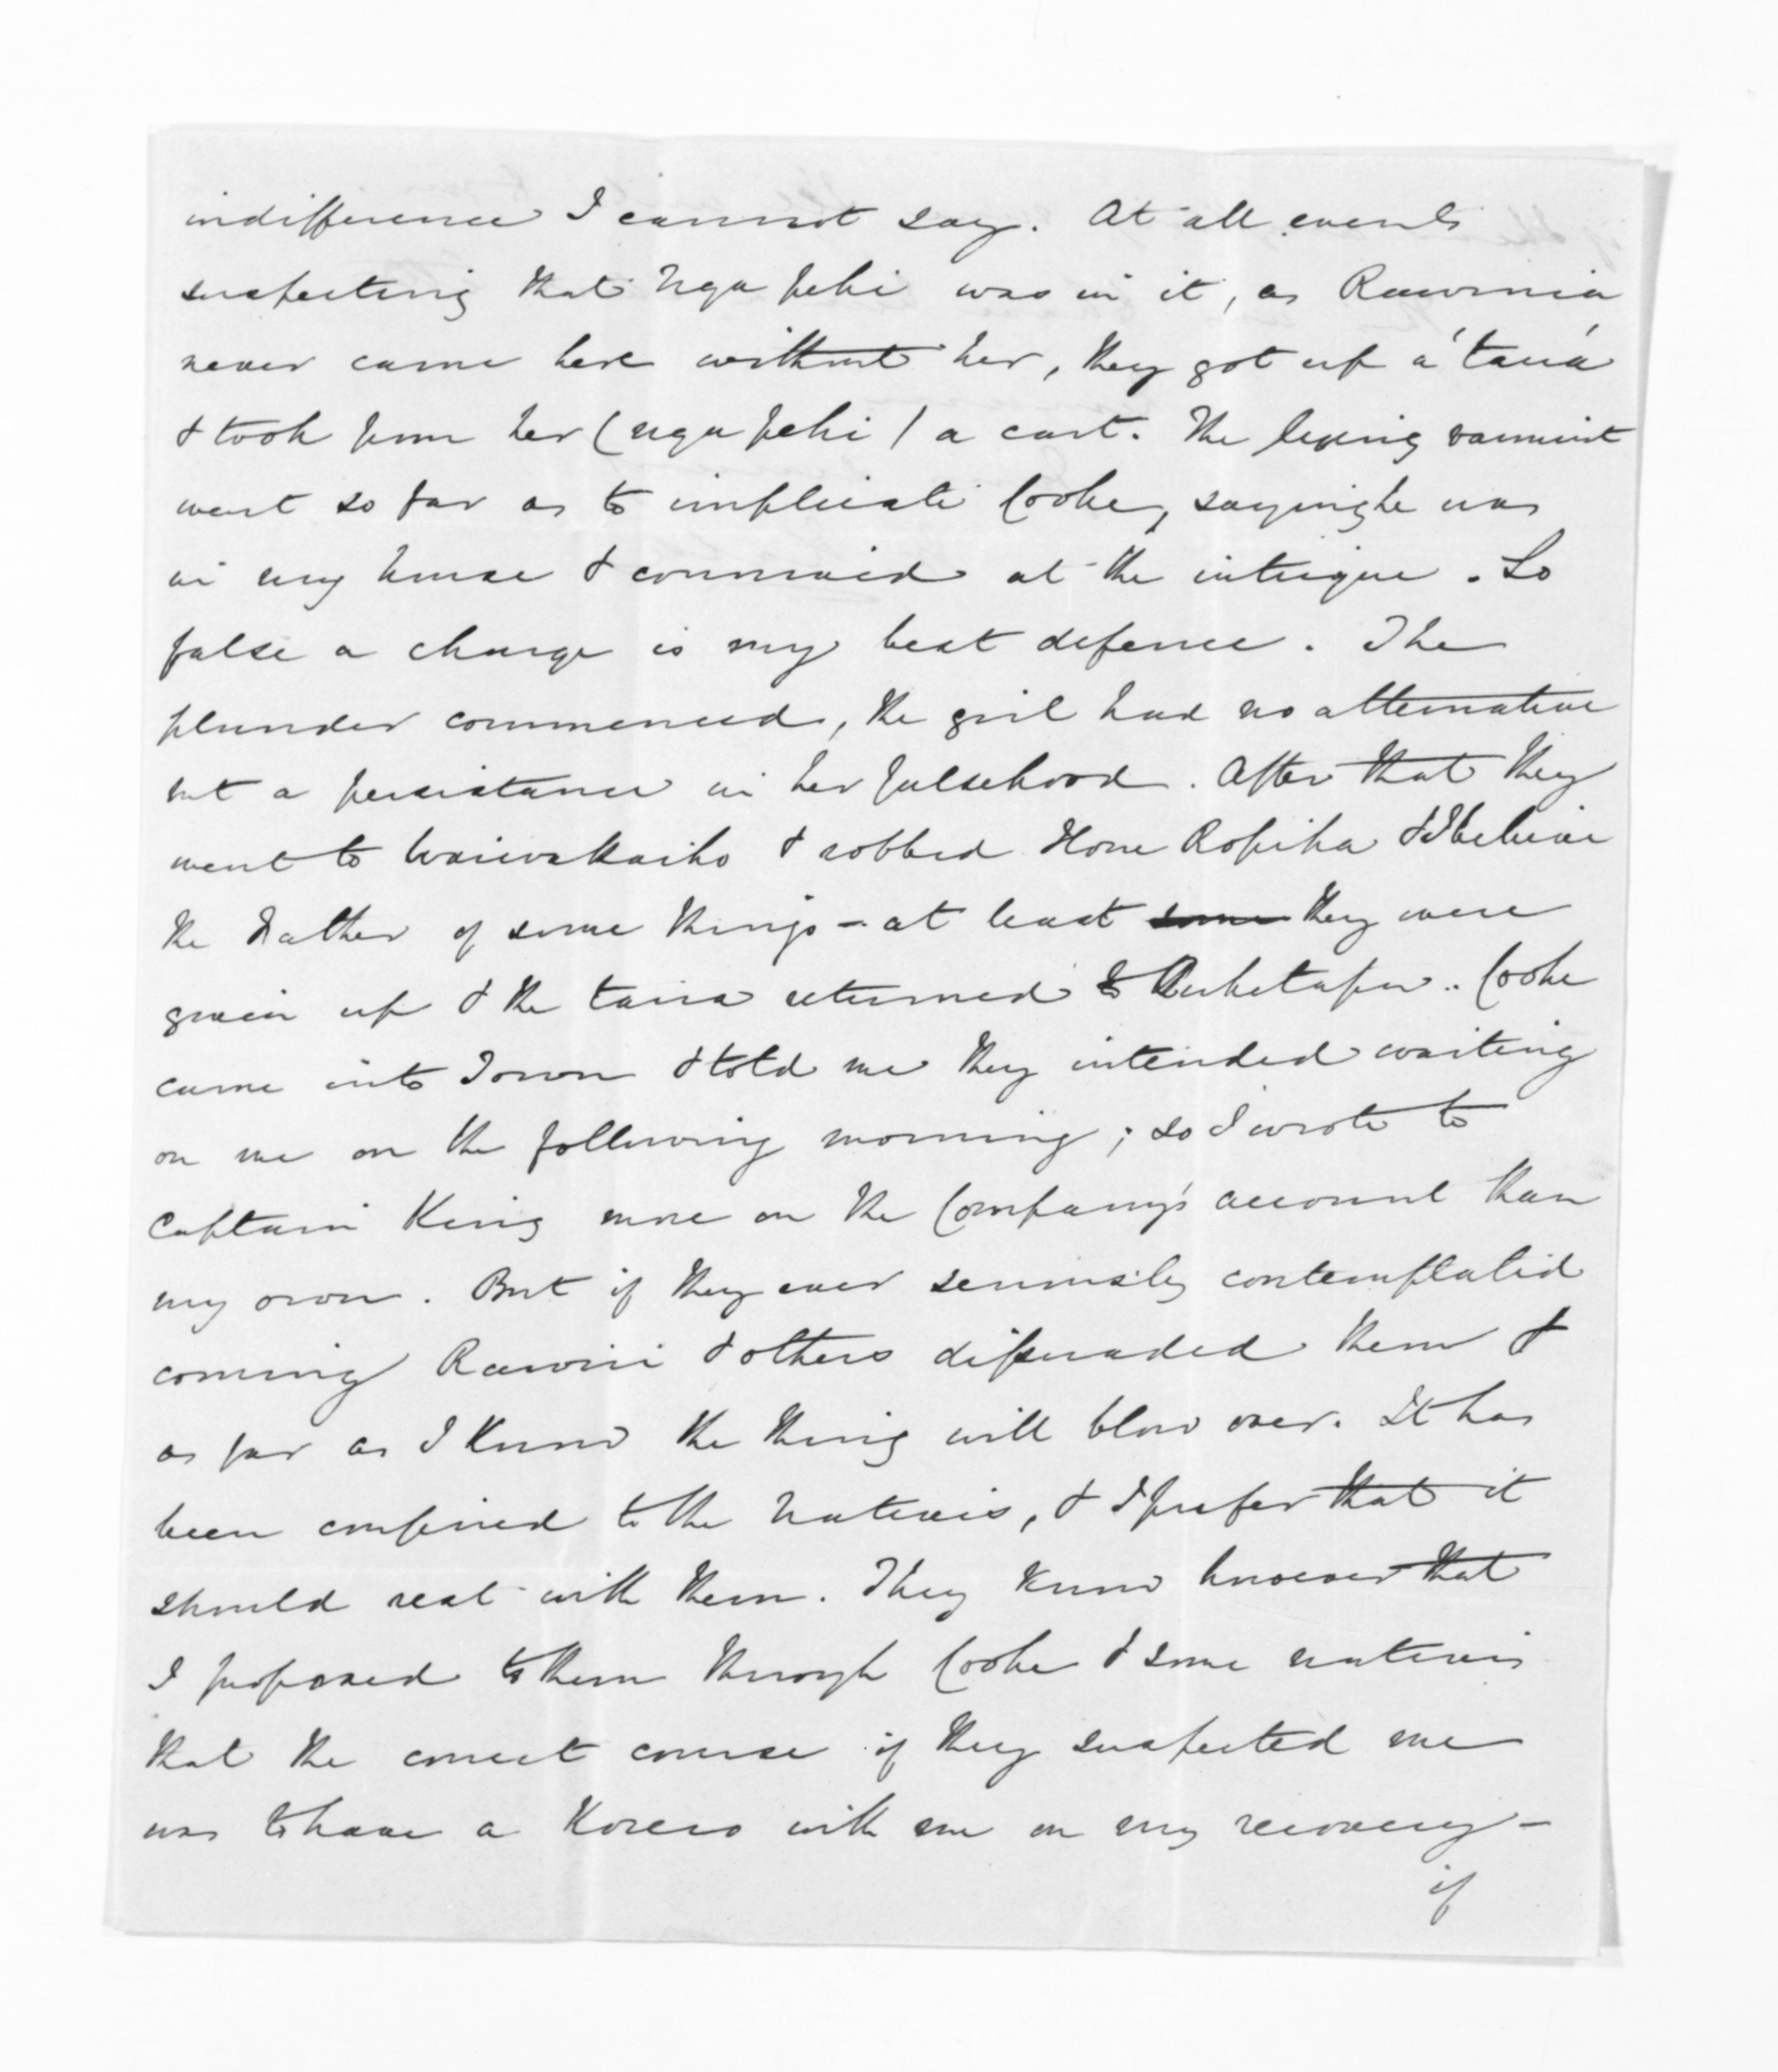 indifference I cannot say. At all events
suspecting that Nga pehi was in it, as Rawinia
never came here without her, they got up a 'taua'
& took from her (Nga pehi) a cart. The lying varmint
went so far as to implicate Cooke, saying he was
in my house & connived at the intrigue. So
false a charge is my best defence. The
plunder commenced, the girl had no alternative
but a persistance in her falsehood. After that they
went to Waiwakaiho & robbed Hone Ropiha & I believe
the Father of some things - at least some they were
given up & the taua returned to Puketapu. Cooke
came into Town & told me they intended waiting
on me on the following morning; so I wrote to
Captain King more on the Company's account than
my own. But if they ever seriously contemplated
coming Rawiri & others dissuaded them &
as far as I know the thing will blow over. It has
been confined to the Natives, & I prefer that it
should rest with them. They know however that
I proposed to them through Cooke & some natives
that the correct course if they suspected me
was to have a Korero with me on my recovery -
if